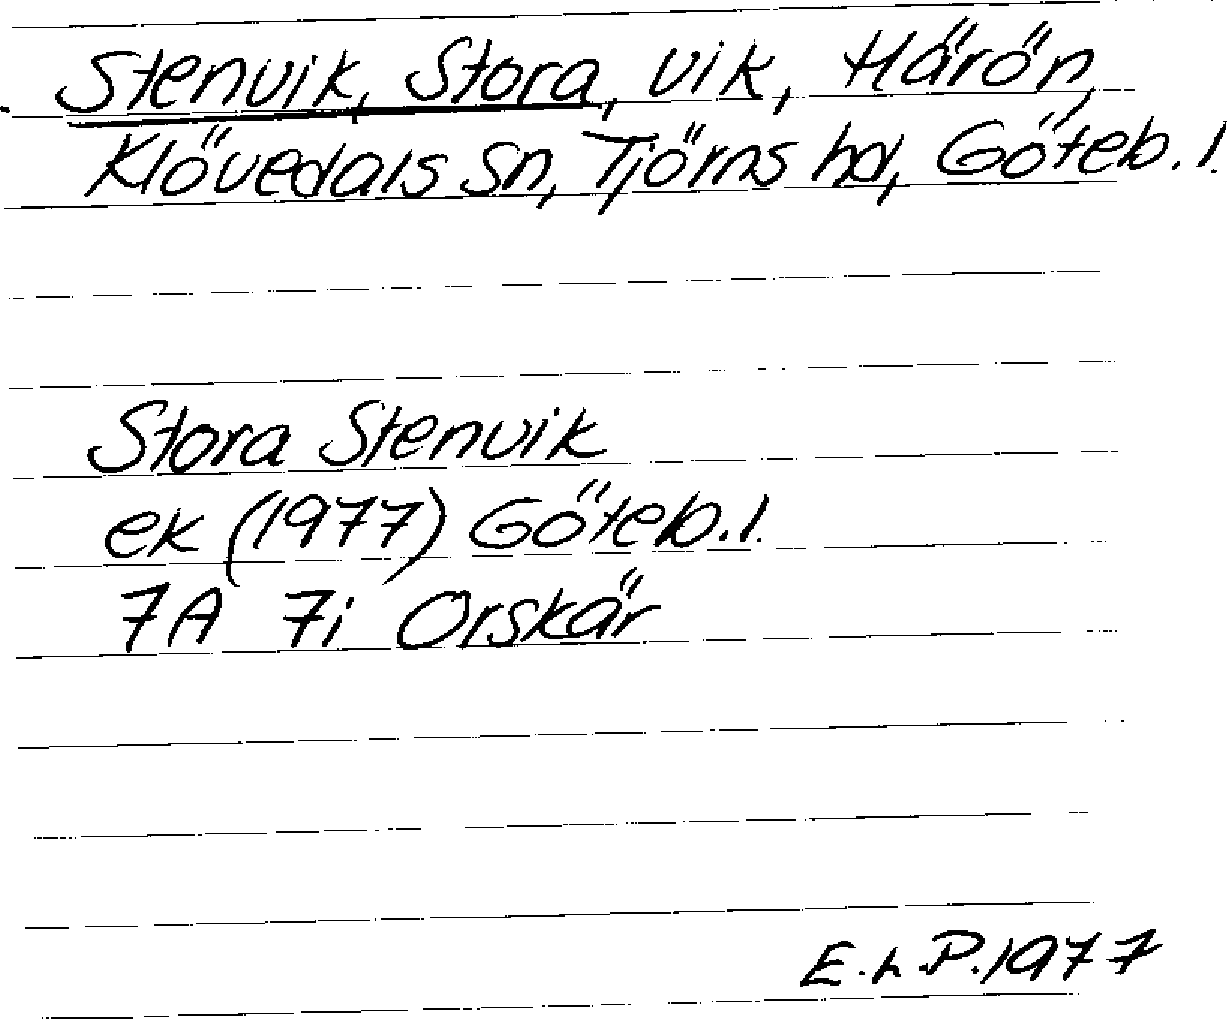 Stenvik, Stora, vik, Härön,
Klövedals sn, Tjörns hd, Göteb. l.
Stora Stenvik
ek (1977) Göteb. l.
7A 7i Orskär
E.L.P. 1977